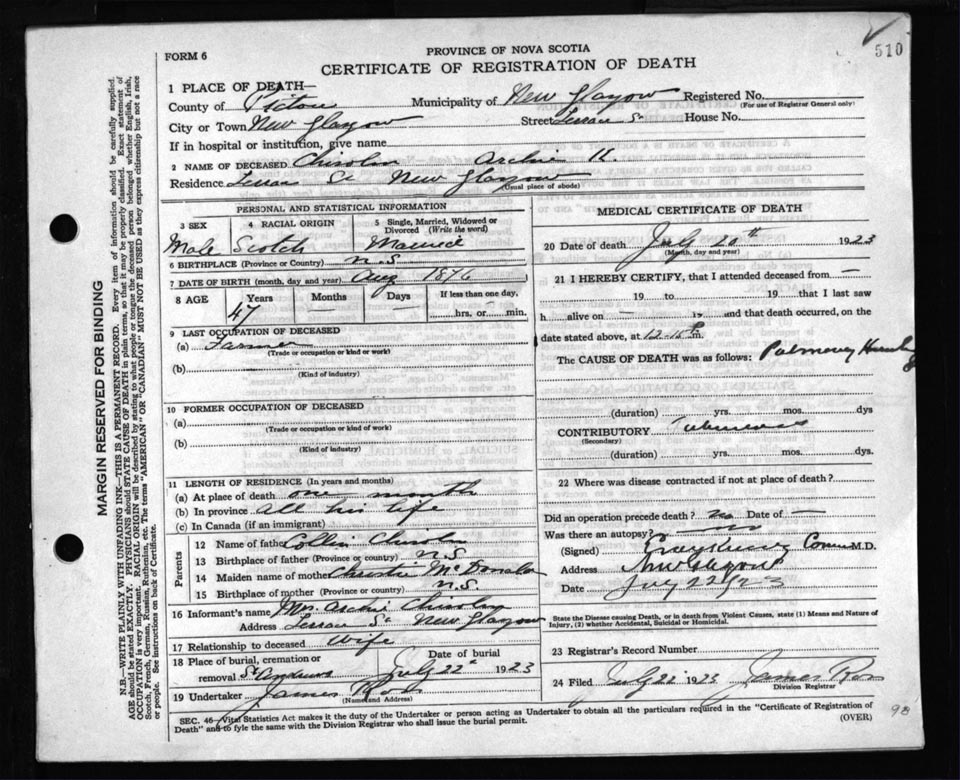 510
FORM 6
PROVINCE OF NOVA SCOTIA
CERTIFICATE OF REGISTRATION OF DEATH
1 PLACE OF DEATH—
County of Pictou Municipality of New Glasgow Registered No.
(For use of Registrar General only)
City or Town New Glasgow Street House No.
If in hospital or institution, give name
2 NAME OF DECEASED Chisolm Archie H.
Residence St New Glasgow
(Usual place of abode)
PERSONAL AND STATISTICAL INFORMATION
3 SEX 4 RACIAL ORIGIN 5 Single, Married, Widowed or Divorced (Write the word)
Male Scotch Married
6 BIRTHPLACE (Province or Country) N.S
7 DATE OF BIRTH (month, day and year) Aug 1876
8 AGE Years Months Days If less than one day,
47 — — hrs. or min.
9 LAST OCCUPATION OF DECEASED
(a) Farmer
(Trade or occupation or kind of work)
(b)
(Kind of industry)
10 FORMER OCCUPATION OF DECEASED
(a)
(Trade or occupation or kind of work)
(b)
(Kind of industry)
11 LENGTH OF RESIDENCE (In years and months)
(a) At place of death one month
(b) In province all his life
(c) In Canada (if an immigrant)
Parents
12 Name of father Collin Chisolm
13 Birthplace of father (Province or country) N.S
14 Maiden name of mother Christie McDonald
15 Birthplace of mother N.S.
16 Informant's name Mrs. Archie Chisolm
Address St New Glasgow
17 Relationship to deceased Wife
18 Place of burial, cremation or removal St Andrews Date of burial July 22" 1923
19 Undertaker James Ross
(Name and Address)
MEDICAL CERTIFICATE OF DEATH
20 Date of death July 20th 1923
(Month, day and year)
21 I HEREBY CERTIFY, that I attended deceased from —
19 to 19 that I last saw
h alive on — 19 and that death occurred, on the
date stated above, at 12-15 P m.
The CAUSE OF DEATH was as follows: Pulmonary
(duration) yrs. mos. dys
CONTRIBUTORY
(Secondary)
(duration) yrs. mos. dys.
22 Where was disease contracted if not at place of death?
Did an operation precede death? no Date of —
Was there an autopsy? no
(Signed) M.D.
Address New Glasgow
Date July 22 1923
State the Disease causing Death, or in death from Violent Causes, state (1) Means and Nature of
Injury, (2) whether Accidental, Suicidal or Homicidal.
23 Registrar's Record Number
24 Filed July 22 1923 James Ross
Division Registrar
SEC. 46—Vital Statistics Act makes it the duty of the Undertaker or person acting as Undertaker to obtain all the particulars required in the "Certificate of Registration of
Death" and to fyle the same with the Division Registrar who shall issue the burial permit.
(OVER)
MARGIN RESERVED FOR BINDING
N.B.—WRITE PLAINLY WITH UNFADING INK—THIS IS A PERMANENT RECORD. Every item of information should be carefully supplied.
AGE should be stated EXACTLY. PHYSICIANS should STATE CAUSE OF DEATH in plain terms, so that it may be properly classified. Exact statement of
OCCUPATION is very important. RACIAL ORIGIN will be described by stating to what people or tongue the deceased person belonged whether English, Irish,
Scotch, French, German, Russian, Ruthenian, etc. The terms "AMERICAN" OR "CANADIAN" MUST NOT BE USED as they express citizenship but not a race
or people. See instructions on back of Certificate.